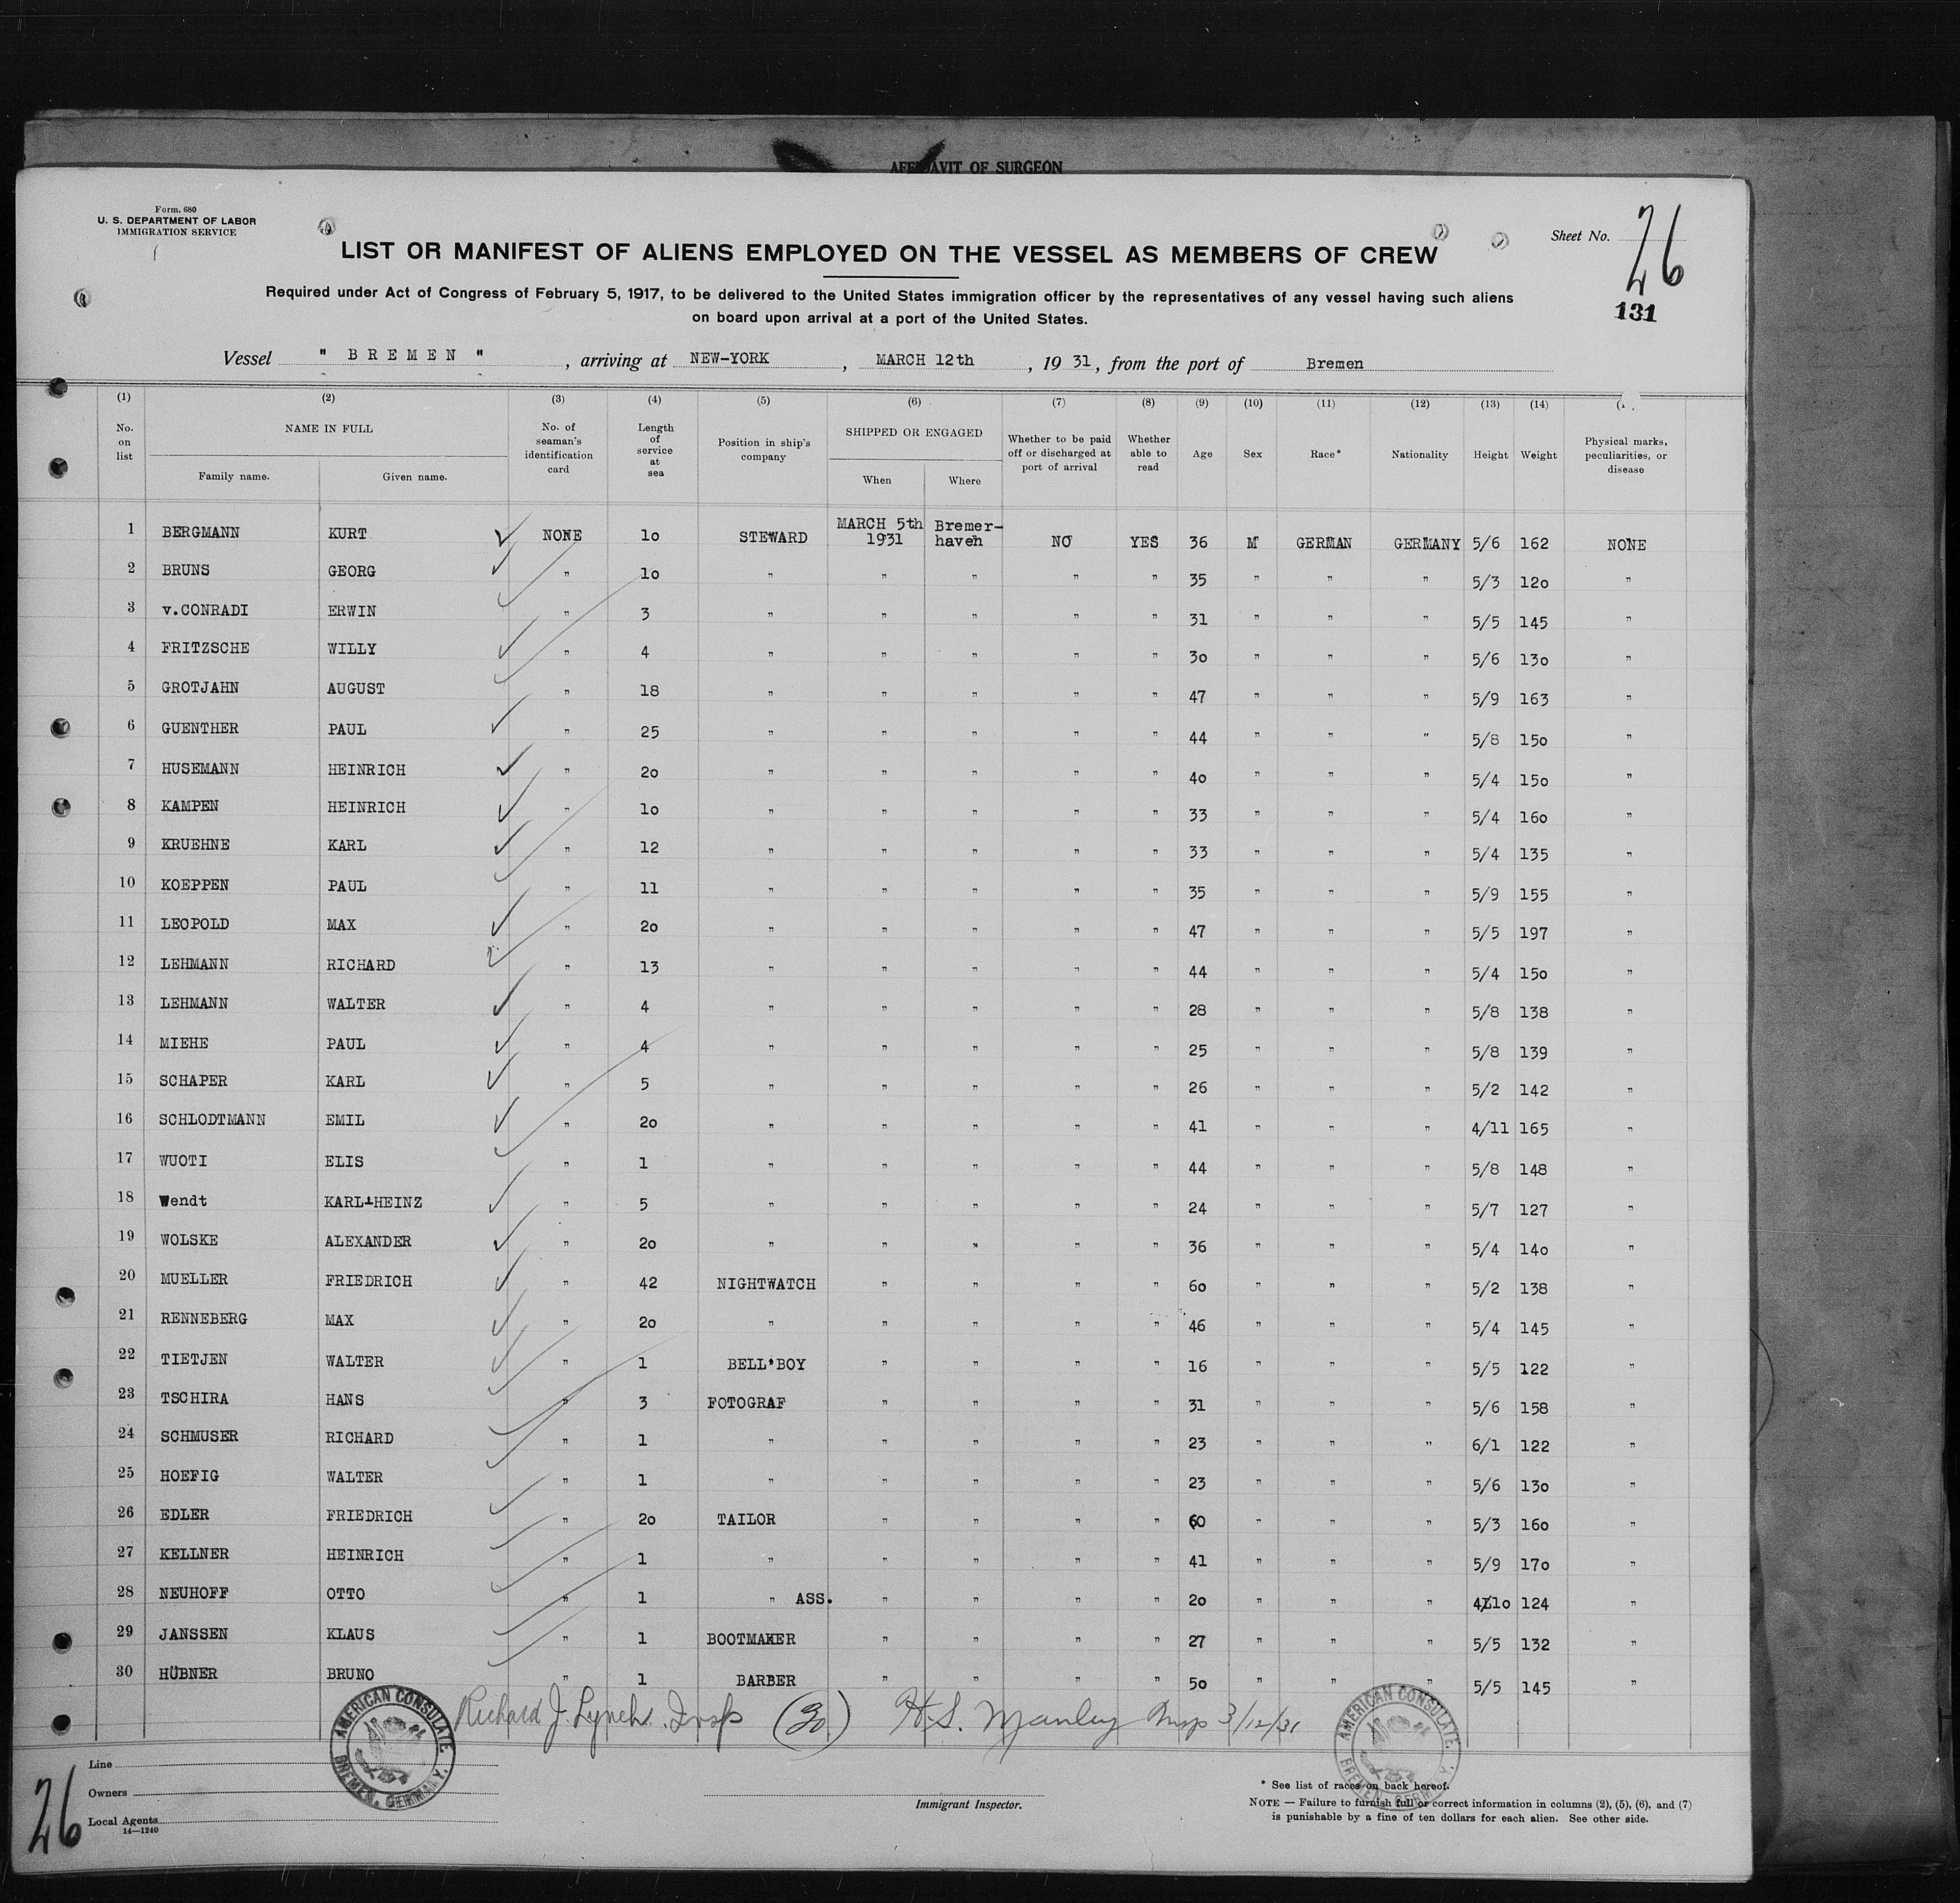 AFFIDAVIT OF SURGEON
Form. 680
U. S. DEPARTMENT OF LABOR
IMMIGRATION SERVICE
Sheet No. 26
131
LIST OR MANIFEST OF ALIENS EMPLOYED ON THE VESSEL AS MEMBERS OF CREW
Required under Act of Congress of February 5, 1917, to be delivered to the United States immigration officer by the representatives of any vessel having such aliens
on board upon arrival at a port of the United States.
Vessel " BREMEN " , arriving at NEW-YORK , MARCH 12th , 19 31, from the port of Bremen
(1) (2) (3) (4) (5) (6) (7) (8) (9) (10) (11) (12) (13) (14)
No. on list NAME IN FULL Family name. Given name. No. of seaman's identification card Length of service at sea Position in ship's company SHIPPED OR ENGAGED When Where Whether to be paid off or discharged at port of arrival Whether able to read Age Sex Race* Nationality Height Weight Physical marks, peculiarities, or disease
1 BERGMANN KURT NONE 1o STEWARD MARCH 5th 1931 Bremer-haven NO YES 36 M GERMAN GERMANY 5/6 162 NONE
2 BRUNS GEORG " 1o " " " " " 35 " " " 5/3 12o "
3 v.CONRADI ERWIN " 3 " " " " " 31 " " " 5/5 145 "
4 FRITZSCHE WILLY " 4 " " " " " 3o " " " 5/6 13o "
5 GROTJAHN AUGUST " 18 " " " " " 47 " " " 5/9 163 "
6 GUENTHER PAUL " 25 " " " " " 44 " " " 5/8 15o "
7 HUSEMANN HEINRICH " 2o " " " " " 4o " " " 5/4 15o "
8 KAMPEN HEINRICH " 1o " " " " " 33 " " " 5/4 16o "
9 KRUEHNE KARL " 12 " " " " " 33 " " " 5/4 135 "
10 KOEPPEN PAUL " 11 " " " " " 35 " " " 5/9 155 "
11 LEOPOLD MAX " 2o " " " " " 47 " " " 5/5 197 "
12 LEHMANN RICHARD " 13 " " " " " 44 " " " 5/4 15o "
13 LEHMANN WALTER " 4 " " " " " 28 " " " 5/8 138 "
14 MIEHE PAUL " 4 " " " " " 25 " " " 5/8 139 "
15 SCHAPER KARL " 5 " " " " " 26 " " " 5/2 142 "
16 SCHLODTMANN EMIL " 2o " " " " " 41 " " " 4/11 165 "
17 WUOTI ELIS " 1 " " " " " 44 " " " 5/8 148 "
18 Wendt KARL-HEINZ " 5 " " " " " 24 " " " 5/7 127 "
19 WOLSKE ALEXANDER " 2o " " " " " 36 " " " 5/4 14o "
20 MUELLER FRIEDRICH " 42 NIGHTWATCH " " " " 6o " " " 5/2 138 "
21 RENNEBERG MAX " 2o " " " " " 46 " " " 5/4 145 "
22 TIETJEN WALTER " 1 BELL BOY " " " " 16 " " " 5/5 122 "
23 TSCHIRA HANS " 3 FOTOGRAF " " " " 31 " " " 5/6 158 "
24 SCHMUSER RICHARD " 1 " " " " " 23 " " " 6/1 122 "
25 HOEFIG WALTER " 1 " " " " " 23 " " " 5/6 13o "
26 EDLER FRIEDRICH " 2o TAILOR " " " " 60 " " " 5/3 16o "
27 KELLNER HEINRICH " 1 " " " " " 41 " " " 5/9 17o "
28 NEUHOFF OTTO " 1 " ASS. " " " " 2o " " " 4/1o 124 "
29 JANSSEN KLAUS " 1 BOOTMAKER " " " " 27 " " " 5/5 132 "
30 HÜBNER BRUNO " 1 BARBER " " " " 5o " " " 5/5 145 "
Richard J. Lynch. Insp (30) H.S. Manley Insp 3/12/31
AMERICAN CONSULATE. BREMEN, GERMANY.
AMERICAN CONSULATE. BREMEN, GERMANY.
Line
Owners
Local Agents
14—1240
26
Immigrant Inspector.
* See list of races on back hereof.
NOTE — Failure to furnish full or correct information in columns (2), (5), (6), and (7)
is punishable by a fine of ten dollars for each alien. See other side.